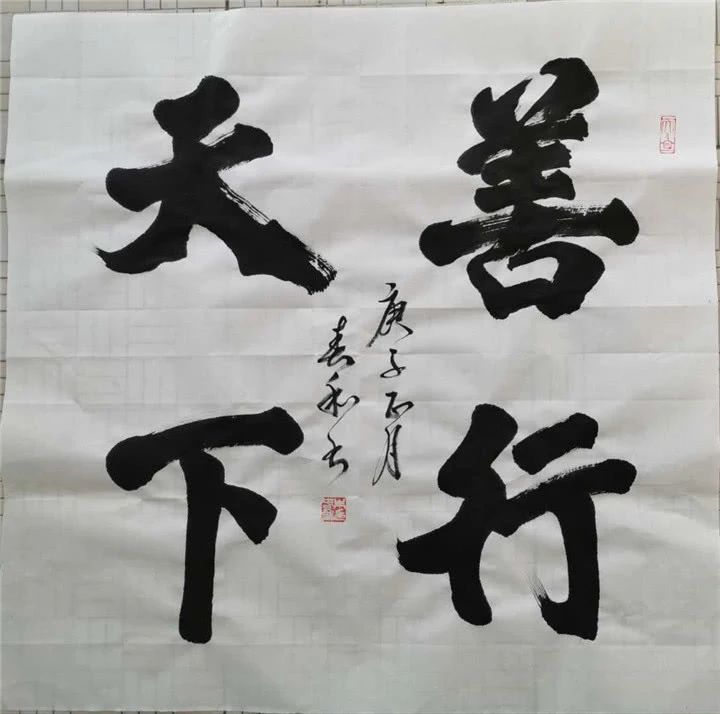 善行
天下
庚子正月
春和书